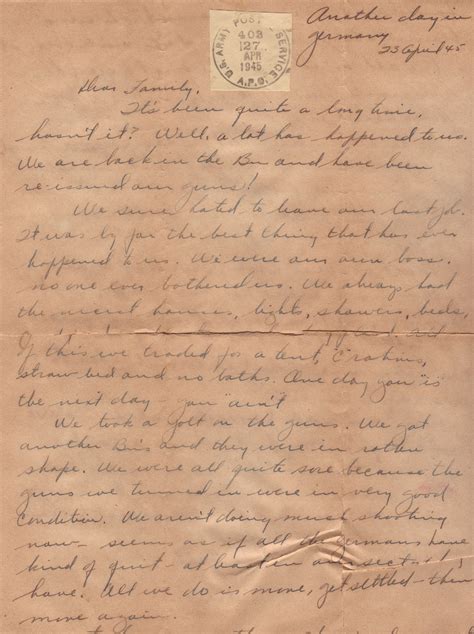 Another day in
Germany
23 April 45
U.S. ARMY POST SERVICE
403
27
APR
1945
A.P.O.
Dear Family,
It's been quite a long time,
hasn't it? Well, a lot has happened to us.
We are back in the Bn and have been
re-issued our guns!
We sure hated to leave our last job.
It was by far the best thing that has ever
happened to us. We were our own boss,
no one ever bothered us. We always had
the nicest houses, lights, showers, beds,
all
of this we traded for a tent, C rations,
straw bed and no baths. One day you "is"
the next day - you "ain't"
We took a jolt on the guns. We got
another Bn's and they were in rotten
shape. We were all quite sore because the
guns we turned in were in very good
condition. We aren't doing much shooting
now - seems as if all the Germans have
kind of quit - at least in our sector they
have. All we do is move, get settled - then
move again.